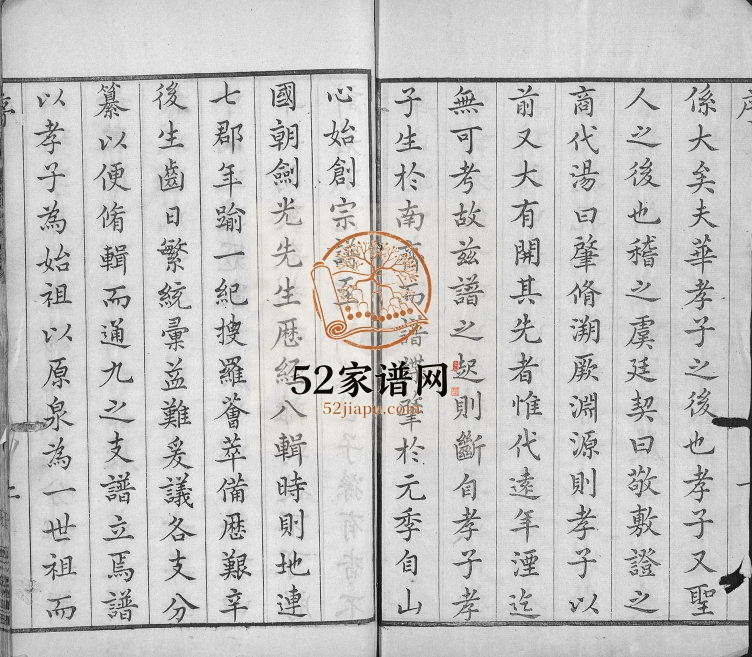 序
係大矣夫華孝子之後也孝子又聖
人之後也稽之虞廷契曰敬敷證之
商代湯曰肇脩溯厥淵源則孝子以
前又大有開其先者惟代遠年湮迄
無可考故茲譜之起則斷自孝子孝
子生於南齊而譜肇於元季自山
心始創宗譜至
國朝劍光先生歷經八輯時則地連
七郡年踰一紀搜羅薈萃備歷艱辛
後生齒日繁統彙益難爰議各支分
纂以便脩輯而通九之支譜立焉譜
以孝子為始祖以原泉為一世祖而
序
52家谱网
52jiapu.com